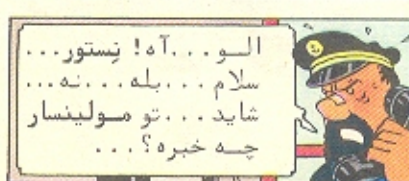 الـو...آه! نِستور...
سلام...بله...نـه...
شاید...تو مـولینسار
چـه خبره؟...